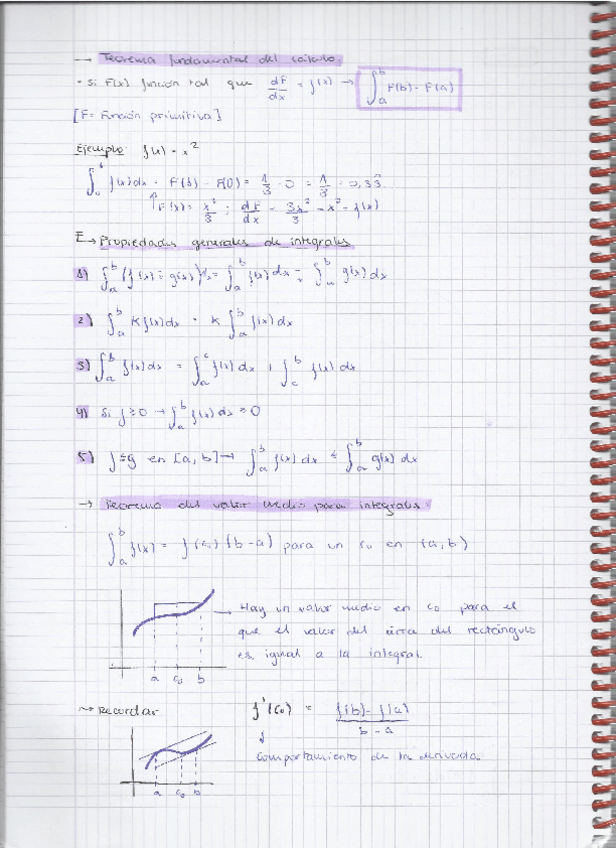 → Teorema fundamental del cálculo:
• Si F(x) función tal que dF/dx = f(x) → ∫_a^b F(b) - F(a)
[F = Función primitiva]
Ejemplo: f(x) = x²
∫_0^1 f(x) dx = F(1) - F(0) = 1/3 - 0 = 1/3 = 0,33
↑ F(x) = x³/3 ; dF/dx = 3x²/3 = x² = f(x)
E → Propiedades generales de integrales
1) ∫_a^b (f(x) ± g(x)) dx = ∫_a^b f(x) dx ± ∫_a^b g(x) dx
2) ∫_a^b K f(x) dx = K ∫_a^b f(x) dx
3) ∫_a^b f(x) dx = ∫_a^c f(x) dx + ∫_c^b f(x) dx
4) Si f ≥ 0 → ∫_a^b f(x) dx ≥ 0
5) f ≤ g en [a, b] → ∫_a^b f(x) dx ≤ ∫_a^b g(x) dx
→ Teorema del valor medio para integrales:
∫_a^b f(x) = f(c₀) (b - a) para un c₀ en (a, b)
→ Hay un valor medio en c₀ para el
que el valor del área del rectángulo
es igual a la integral.
a c₀ b
→ Recordar f'(c₀) = f(b) - f(a) / b - a
↓
Comportamiento de la derivada
a c₀ b